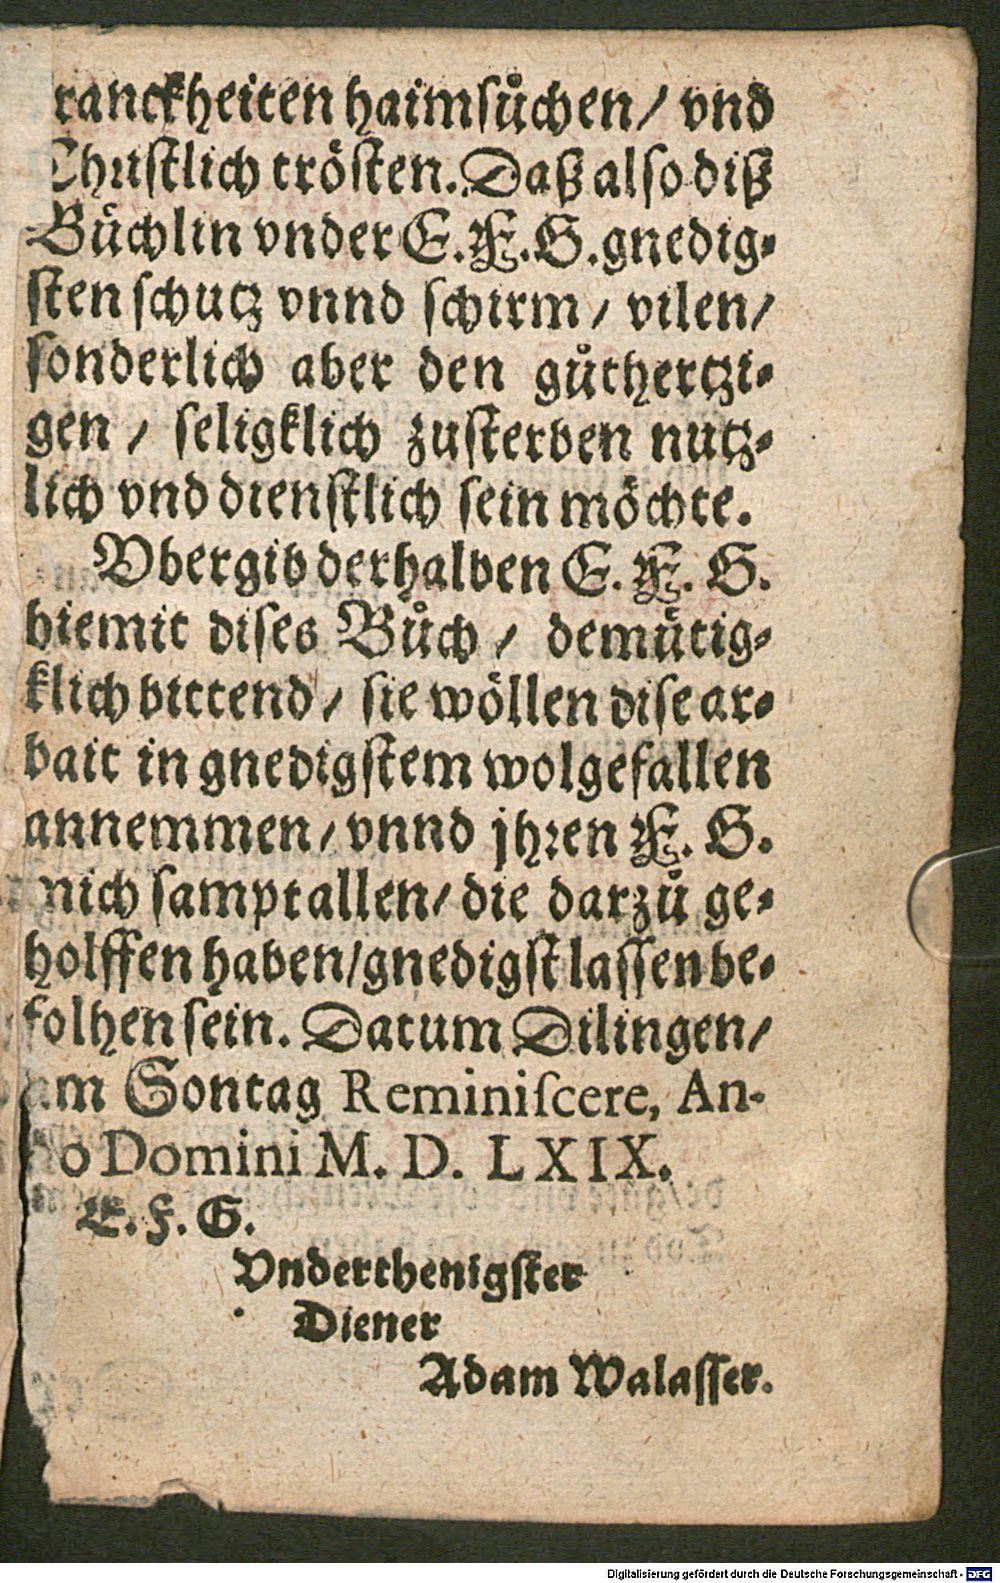 ranckheiten haimsůchen/ vnd
Christlich trösten. Daß also diß
Büchlin vnder E. F. G. gnedig-
sten schutz vnnd schirm/ vilen/
sonderlich aber den gůthertzi-
gen/ seligklich zusterben nutz-
lich vnd dienstlich sein möchte.
Vbergib derhalben E. F. G.
hiemit dises Bůch/ demütig-
klich bittend/ sie wöllen dise ar-
bait in gnedigstem wolgefallen
annemmen/ vnnd jhren F. G.
mich sampt allen/ die darzů ge-
holffen haben/ gnedigst lassen be-
folhen sein. Datum Dilingen/
am Sontag Reminiscere, An-
no Domini M. D. LXIX.
E. F. G.
Vnderthenigster
Diener
Adam Walasser.
Digitalisierung gefördert durch die Deutsche Forschungsgemeinschaft - DFG